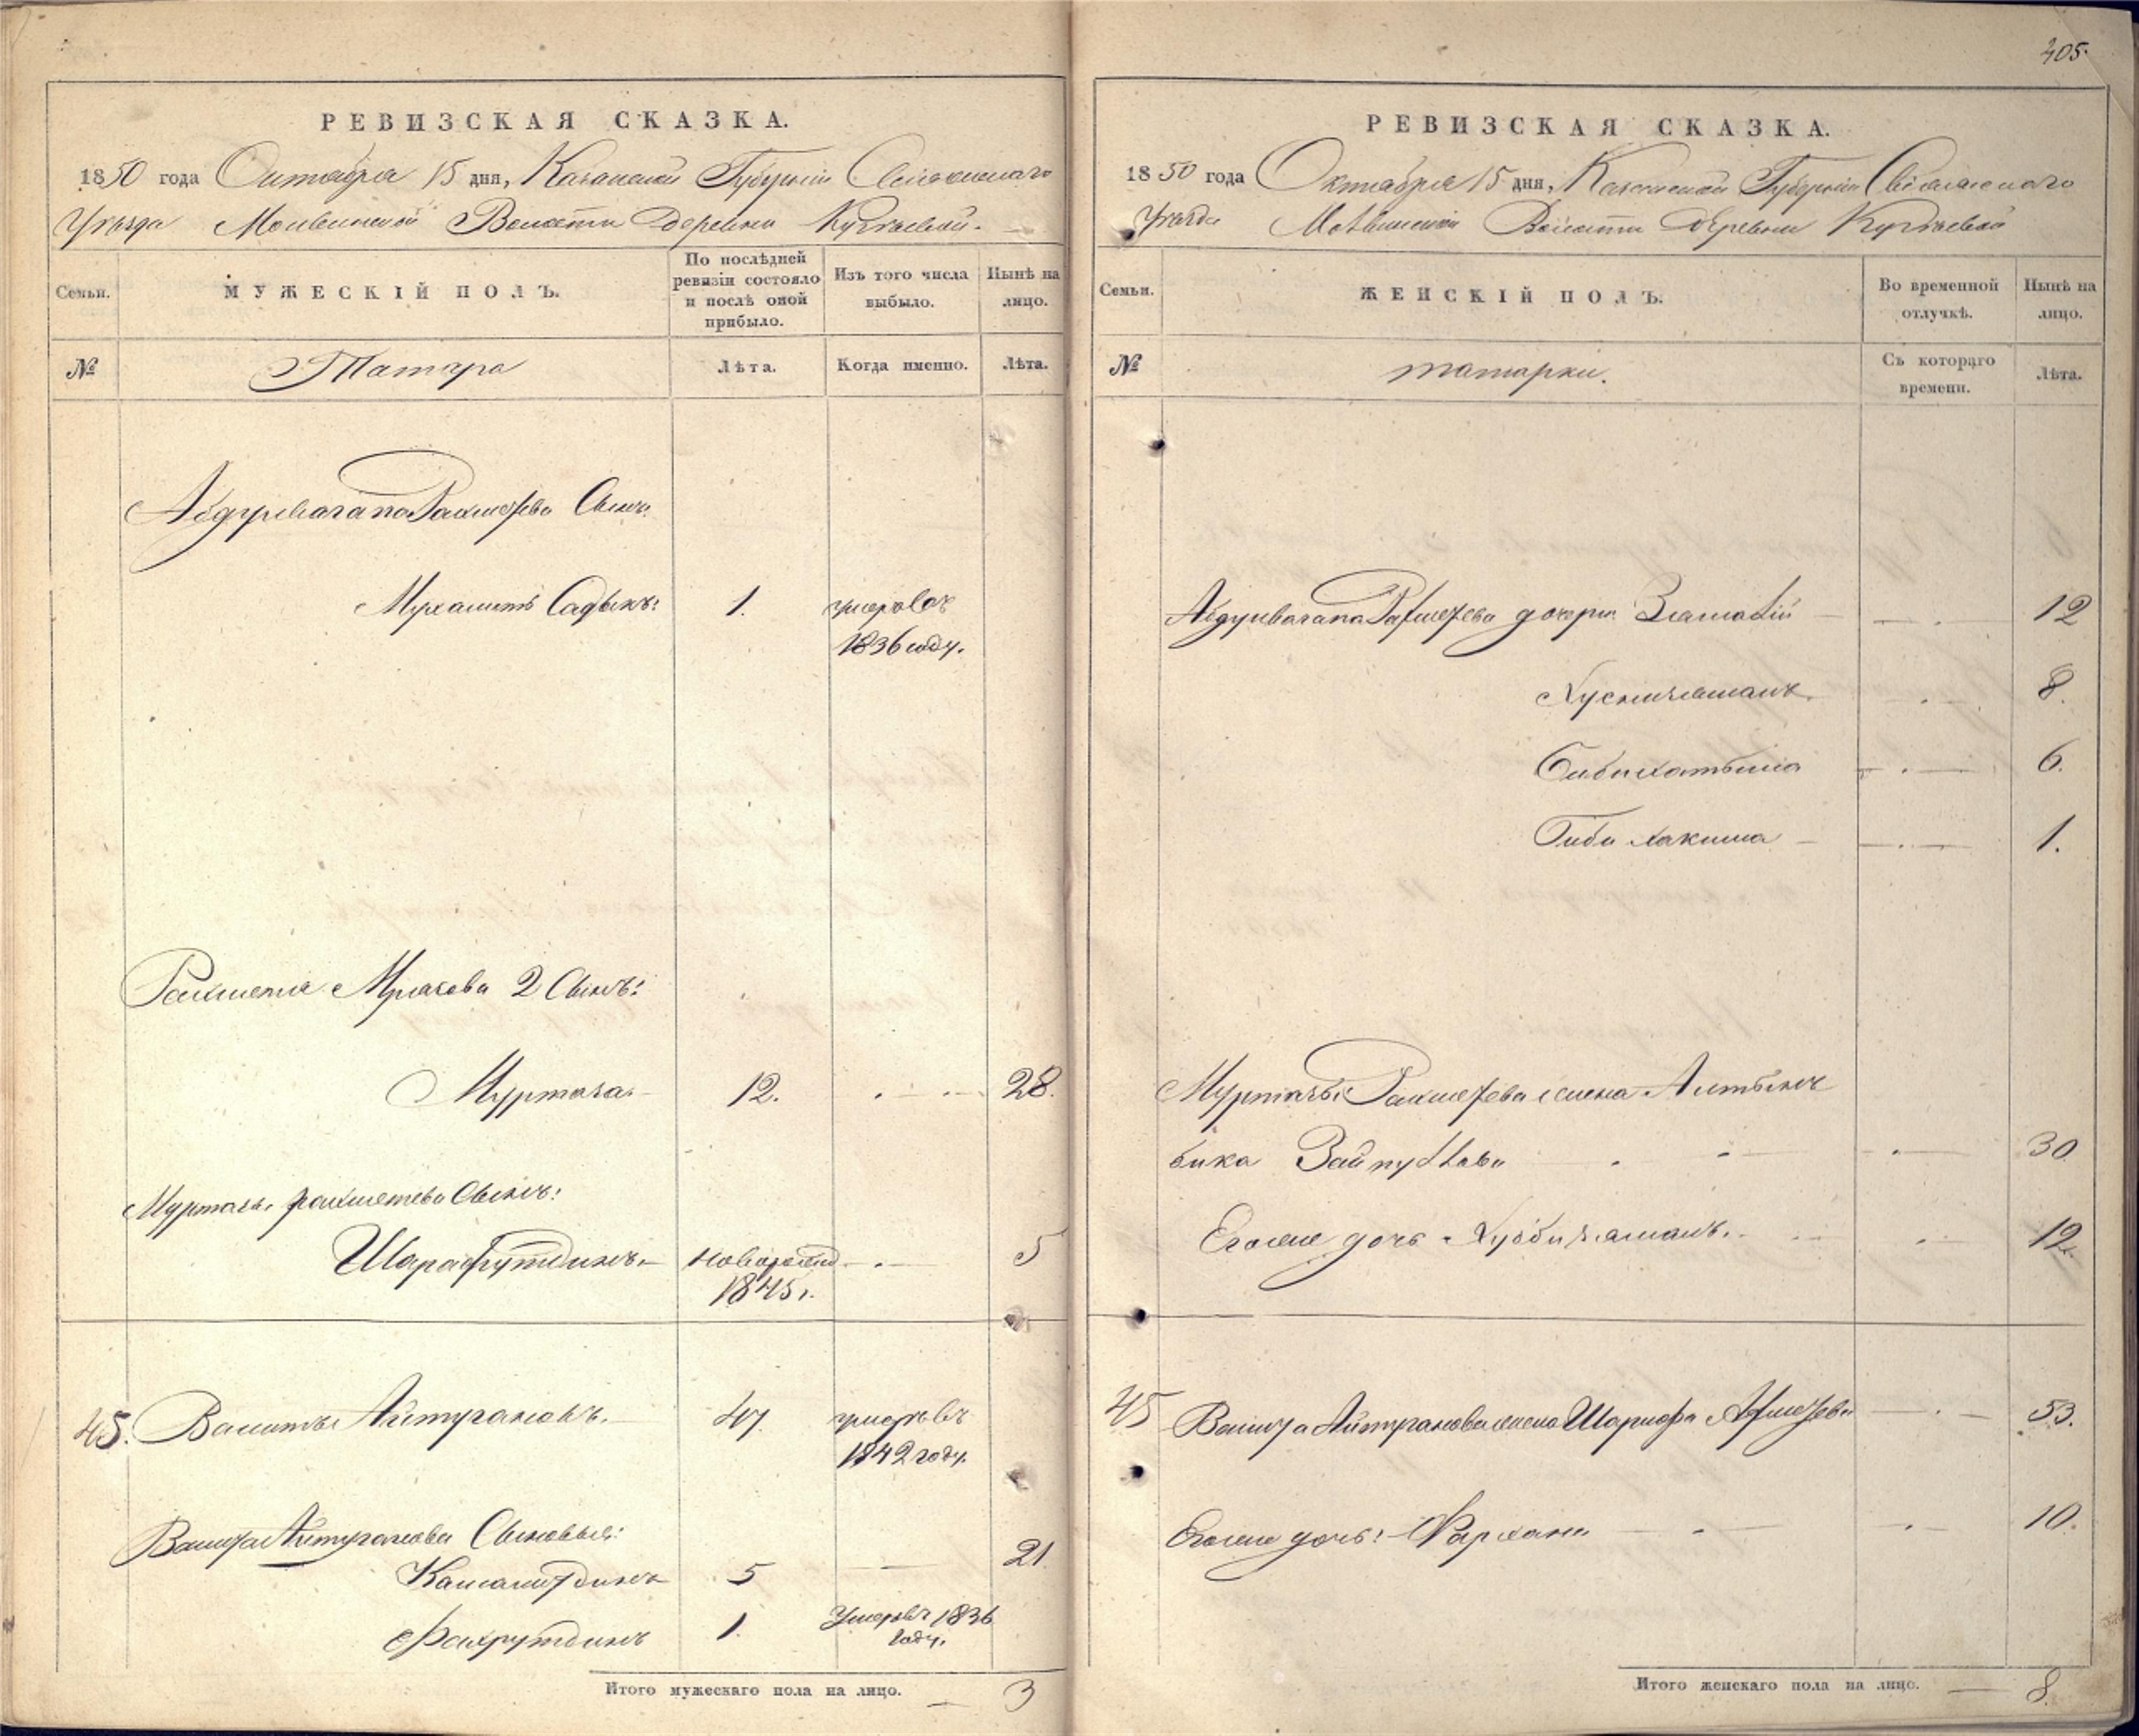 РЕВИЗСКАЯ СКАЗКА.
1850 года Октября 15 дня, Казанской Губернии Свіяжскаго
Уѣзда Волости Деревни
Семьи.
МУЖЕСКІЙ ПОЛЪ.
По послѣдней ревизіи состояло и послѣ оной прибыло.
Изъ того числа выбыло.
Нынѣ на лицо.
№
Татара
Лѣта.
Когда именно.
Лѣта.
Абдулвагапа Рахметева Сынъ
Мухаметъ Садыкъ: 1. умеръ въ
1836 году.
Рахметя 2 Сынъ:
Муртаза 12. 28.
Муртазы рахметева Сынъ:
Шарафутдинъ новорожд 5
1845 г.
45. Айтугановъ. 47. умеръ въ
1842 году.
Айтуганова Сыновья:
Камалитдинъ 5 21.
Фахрутдинъ 1. Умеръ въ 1836
году.
Итого мужескаго пола на лицо. 3
405.
РЕВИЗСКАЯ СКАЗКА.
1850 года Октября 15 дня, Казанской Губерніи Свіяжскаго
Уѣзда Волости Деревни
Семьи.
ЖЕНСКІЙ ПОЛЪ.
Во временной отлучкѣ.
Нынѣ на лицо.
№
татарки.
Съ котораго времени.
Лѣта.
Абдулвагапа Рахметева дочери 12
Хуснизяманъ 8.
Бибихатыма 6.
Биби хакима 1.
Муртазы Рахметева жена Алтынъ
бика 30
Егоже дочь Хуббизяманъ. 12
45 Айтуганова жена Шарифа Ахметева 53.
Егоже дочь: 10.
Итого женскаго пола на лицо. 8.